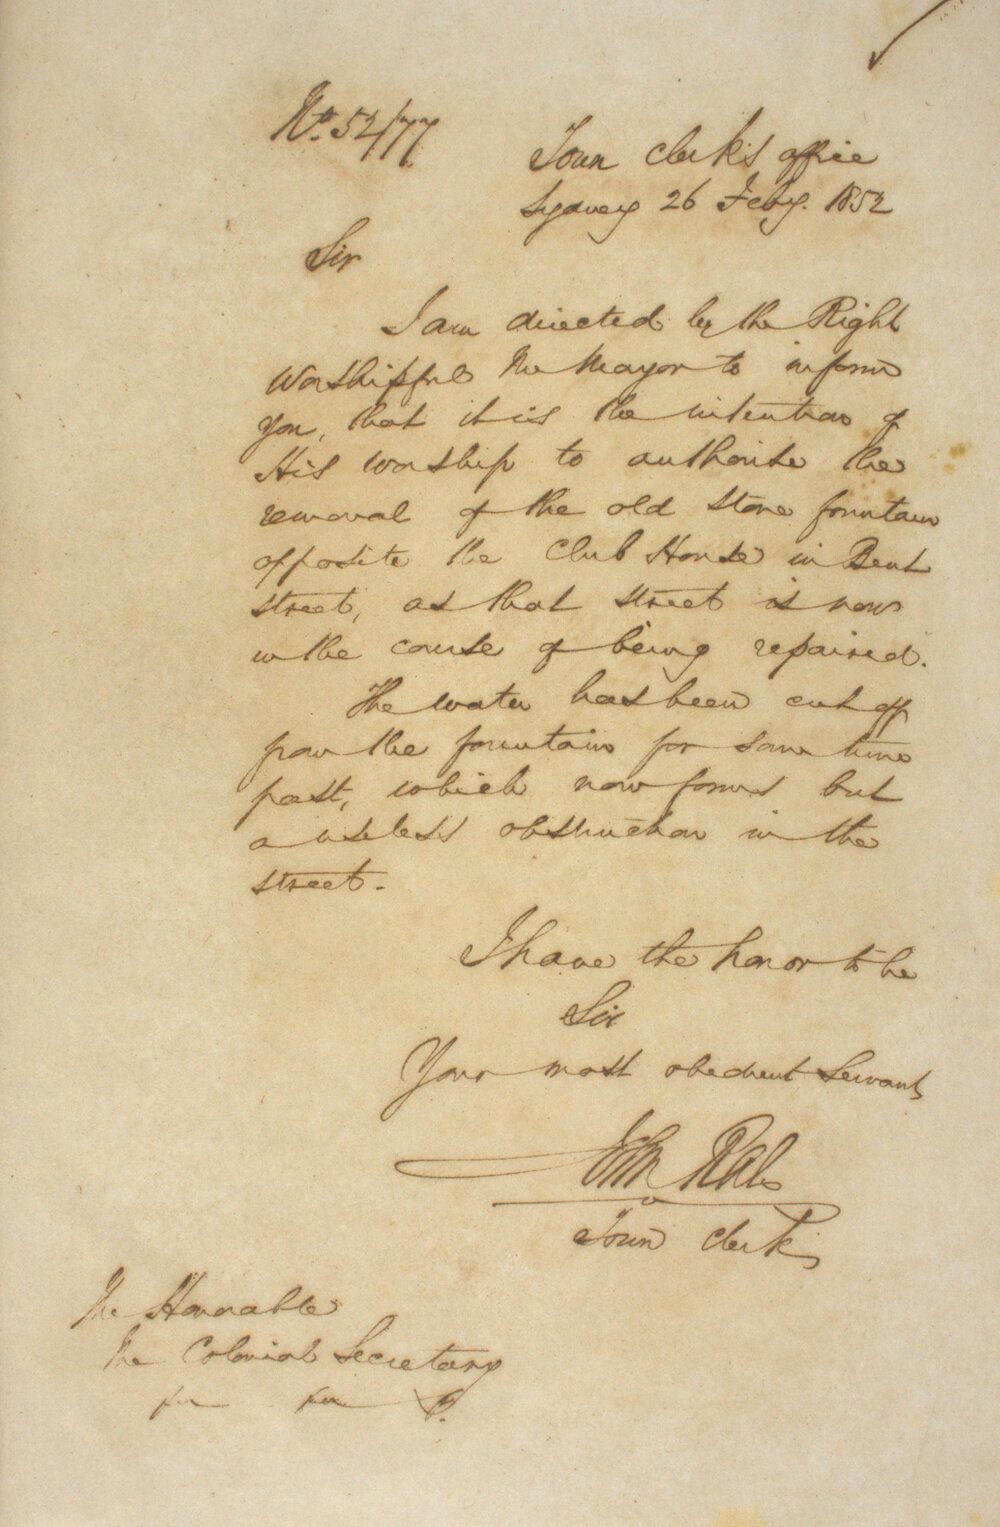 No. 52/77
Town Clerk's office
Sydney 26 Feby. 1852
Sir
I am directed by the Right
Worshipful the Mayor to inform
you, that it is the intention of
His Worship to authorise the
removal of the old stone fountain
opposite the Club House in Bent
street, as that street is now
in the course of being repaired.
The water has been cut off
from the fountain for some time
past, which now forms but
a useless obstruction in the
street.
I have the honor to be
Sir
Your most obedient Servant
John Rae
Town Clerk
The Honorable
The Colonial Secretary